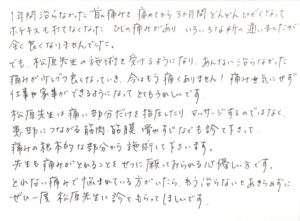 1年間治らなかった首の痛みと痛めてから3か月間どんどんひどくなって
ひどい痛みがあり いろいろな所へ通いましたが
全く良くなりませんでした。
でも、松原先生の施術を受けるようになり、あんなに治らなかった
痛みが少しづつ良くなっていき、今はもう痛くありません！痛みを気にせず
仕事や家事ができるようになってとてもうれしいです。
松原先生は痛い部分だけを指圧したりマッサージするのではなく、
患部につながる筋肉、筋膜、骨やすじなどもを診て下さって、
痛みの根本的な部分から施術して下さいます。
先生も痛みがとれることをせつに願っておられる心優しい方です。
とれない痛みで悩まれている方がいたら、もう治らないとあきらめずに
ぜひ一度 松原先生に診てもらってほしいです。